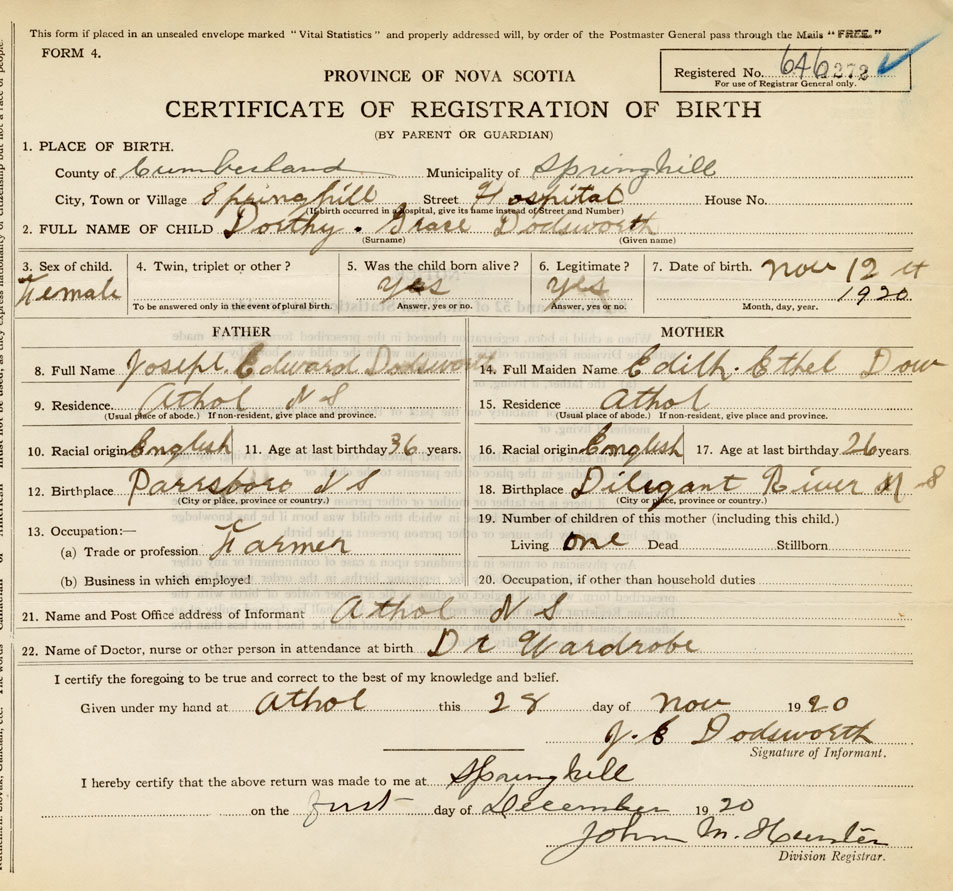 This form if placed in an unsealed envelope marked "Vital Statistics" and properly addressed will, by order of the Postmaster General pass through the Mails "FREE."
FORM 4.
Registered No. 646272
For use of Registrar General only.
PROVINCE OF NOVA SCOTIA
CERTIFICATE OF REGISTRATION OF BIRTH
(BY PARENT OR GUARDIAN)
1. PLACE OF BIRTH.
County of Cumberland Municipality of Springhill
City, Town or Village Springhill Street Hospital House No.
(If birth occurred in a hospital, give its name instead of Street and Number)
2. FULL NAME OF CHILD Dorthy. Grace Dodsworth
(Surname) (Given name)
3. Sex of child. 4. Twin, triplet or other? 5. Was the child born alive? 6. Legitimate? 7. Date of birth. Nov 12th
Female yes yes 1920
To be answered only in the event of plural birth. Answer, yes or no. Answer, yes or no. Month, day, year.
FATHER MOTHER
8. Full Name Joseph. Edward Dodsworth 14. Full Maiden Name Edith. Ethel Dow
9. Residence. Athol N S 15. Residence Athol
(Usual place of abode.) If non-resident, give place and province. (Usual place of abode.) If non-resident, give place and province.
10. Racial origin English 11. Age at last birthday 36 years. 16. Racial origin English 17. Age at last birthday 26 years.
12. Birthplace Parrsboro N S 18. Birthplace Diligant River N S
(City or place, province or country.) (City or place, province or country.)
13. Occupation:— 19. Number of children of this mother (including this child.)
(a) Trade or profession Farmer Living one Dead Stillborn
(b) Business in which employed 20. Occupation, if other than household duties
21. Name and Post Office address of Informant Athol N S
22. Name of Doctor, nurse or other person in attendance at birth Dr Wardrobe
I certify the foregoing to be true and correct to the best of my knowledge and belief.
Given under my hand at Athol this 28 day of Nov 1920
J. E Dodsworth
Signature of Informant.
I hereby certify that the above return was made to me at Springhill
on the first day of December 1920
John M. Hunter
Division Registrar.